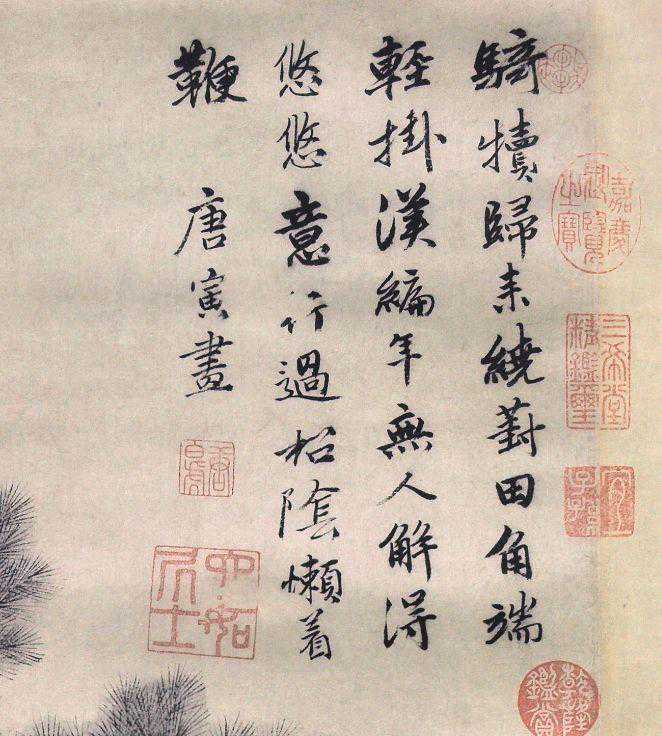 騎犢歸来繞葑田角端
輕掛漢編年無人解得
悠悠意行過松陰懶着
鞭 唐寅畫
嘉慶御覽之寶
三希堂精鑑璽
宜子孫
乾隆鑑賞
唐白虎
六如居士